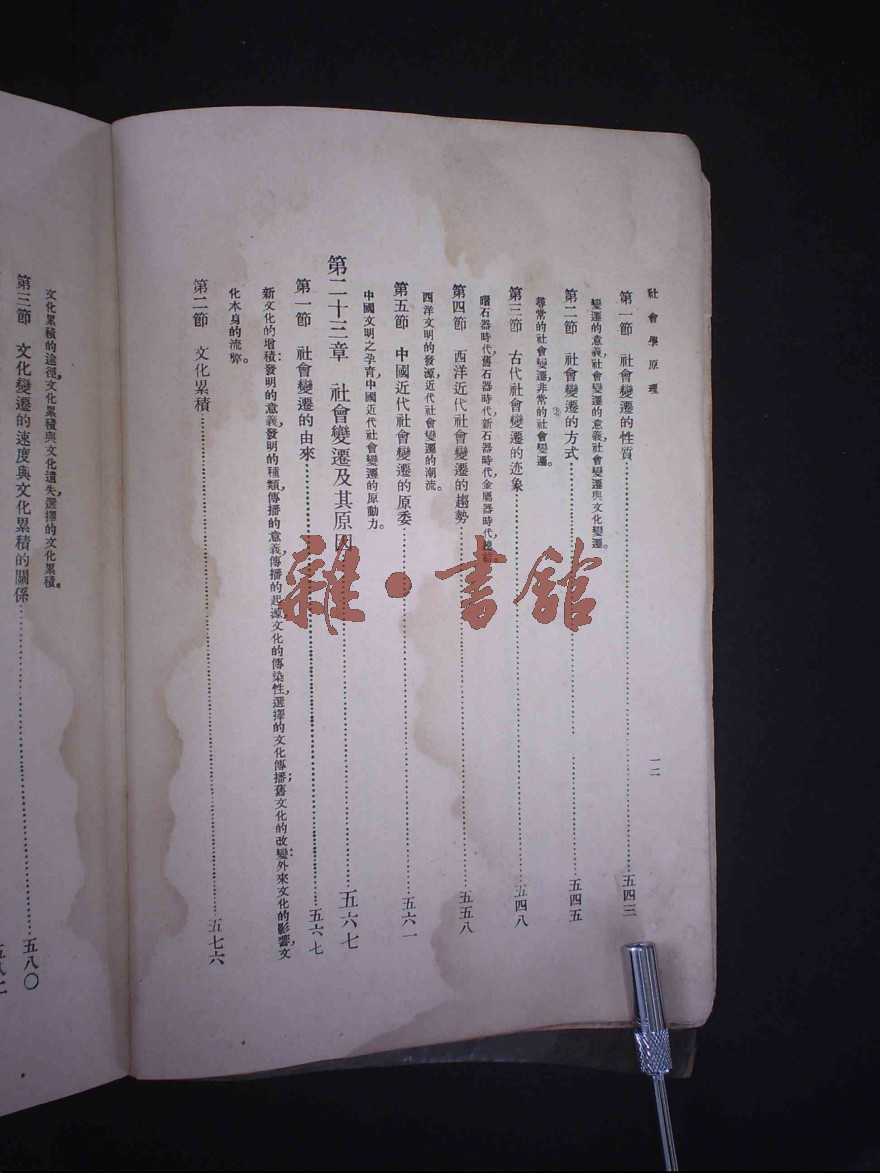 社會學原理
一二
第一節　社會變遷的性質……五四三
變遷的意義，社會變遷的意義，社會變遷與文化變遷。
第二節　社會變遷的方式……五四五
尋常的社會變遷，非常的社會變遷。
第三節　古代社會變遷的迹象……五四八
曙石器時代，舊石器時代，新石器時代，金屬器時代，
第四節　西洋近代社會變遷的趨勢……五五八
西洋文明的發源，近代社會變遷的潮流。
第五節　中國近代社會變遷的原委……五六一
中國文明之孕育，中國近代社會變遷的原動力。
第二十三章　社會變遷及其原因……五六七
第一節　社會變遷的由來……五六七
新文化的增積：發明的意義，發明的種類，傳播的意義，傳播的起源，文化的傳染性，選擇的文化傳播；舊文化的改變：外來文化的影響，文
化本身的流弊。
第二節　文化累積……五七六
文化累積的途徑，文化累積與文化遺失，選擇的文化累積。
第三節　文化變遷的速度與文化累積的關係……五八〇
雜·書館